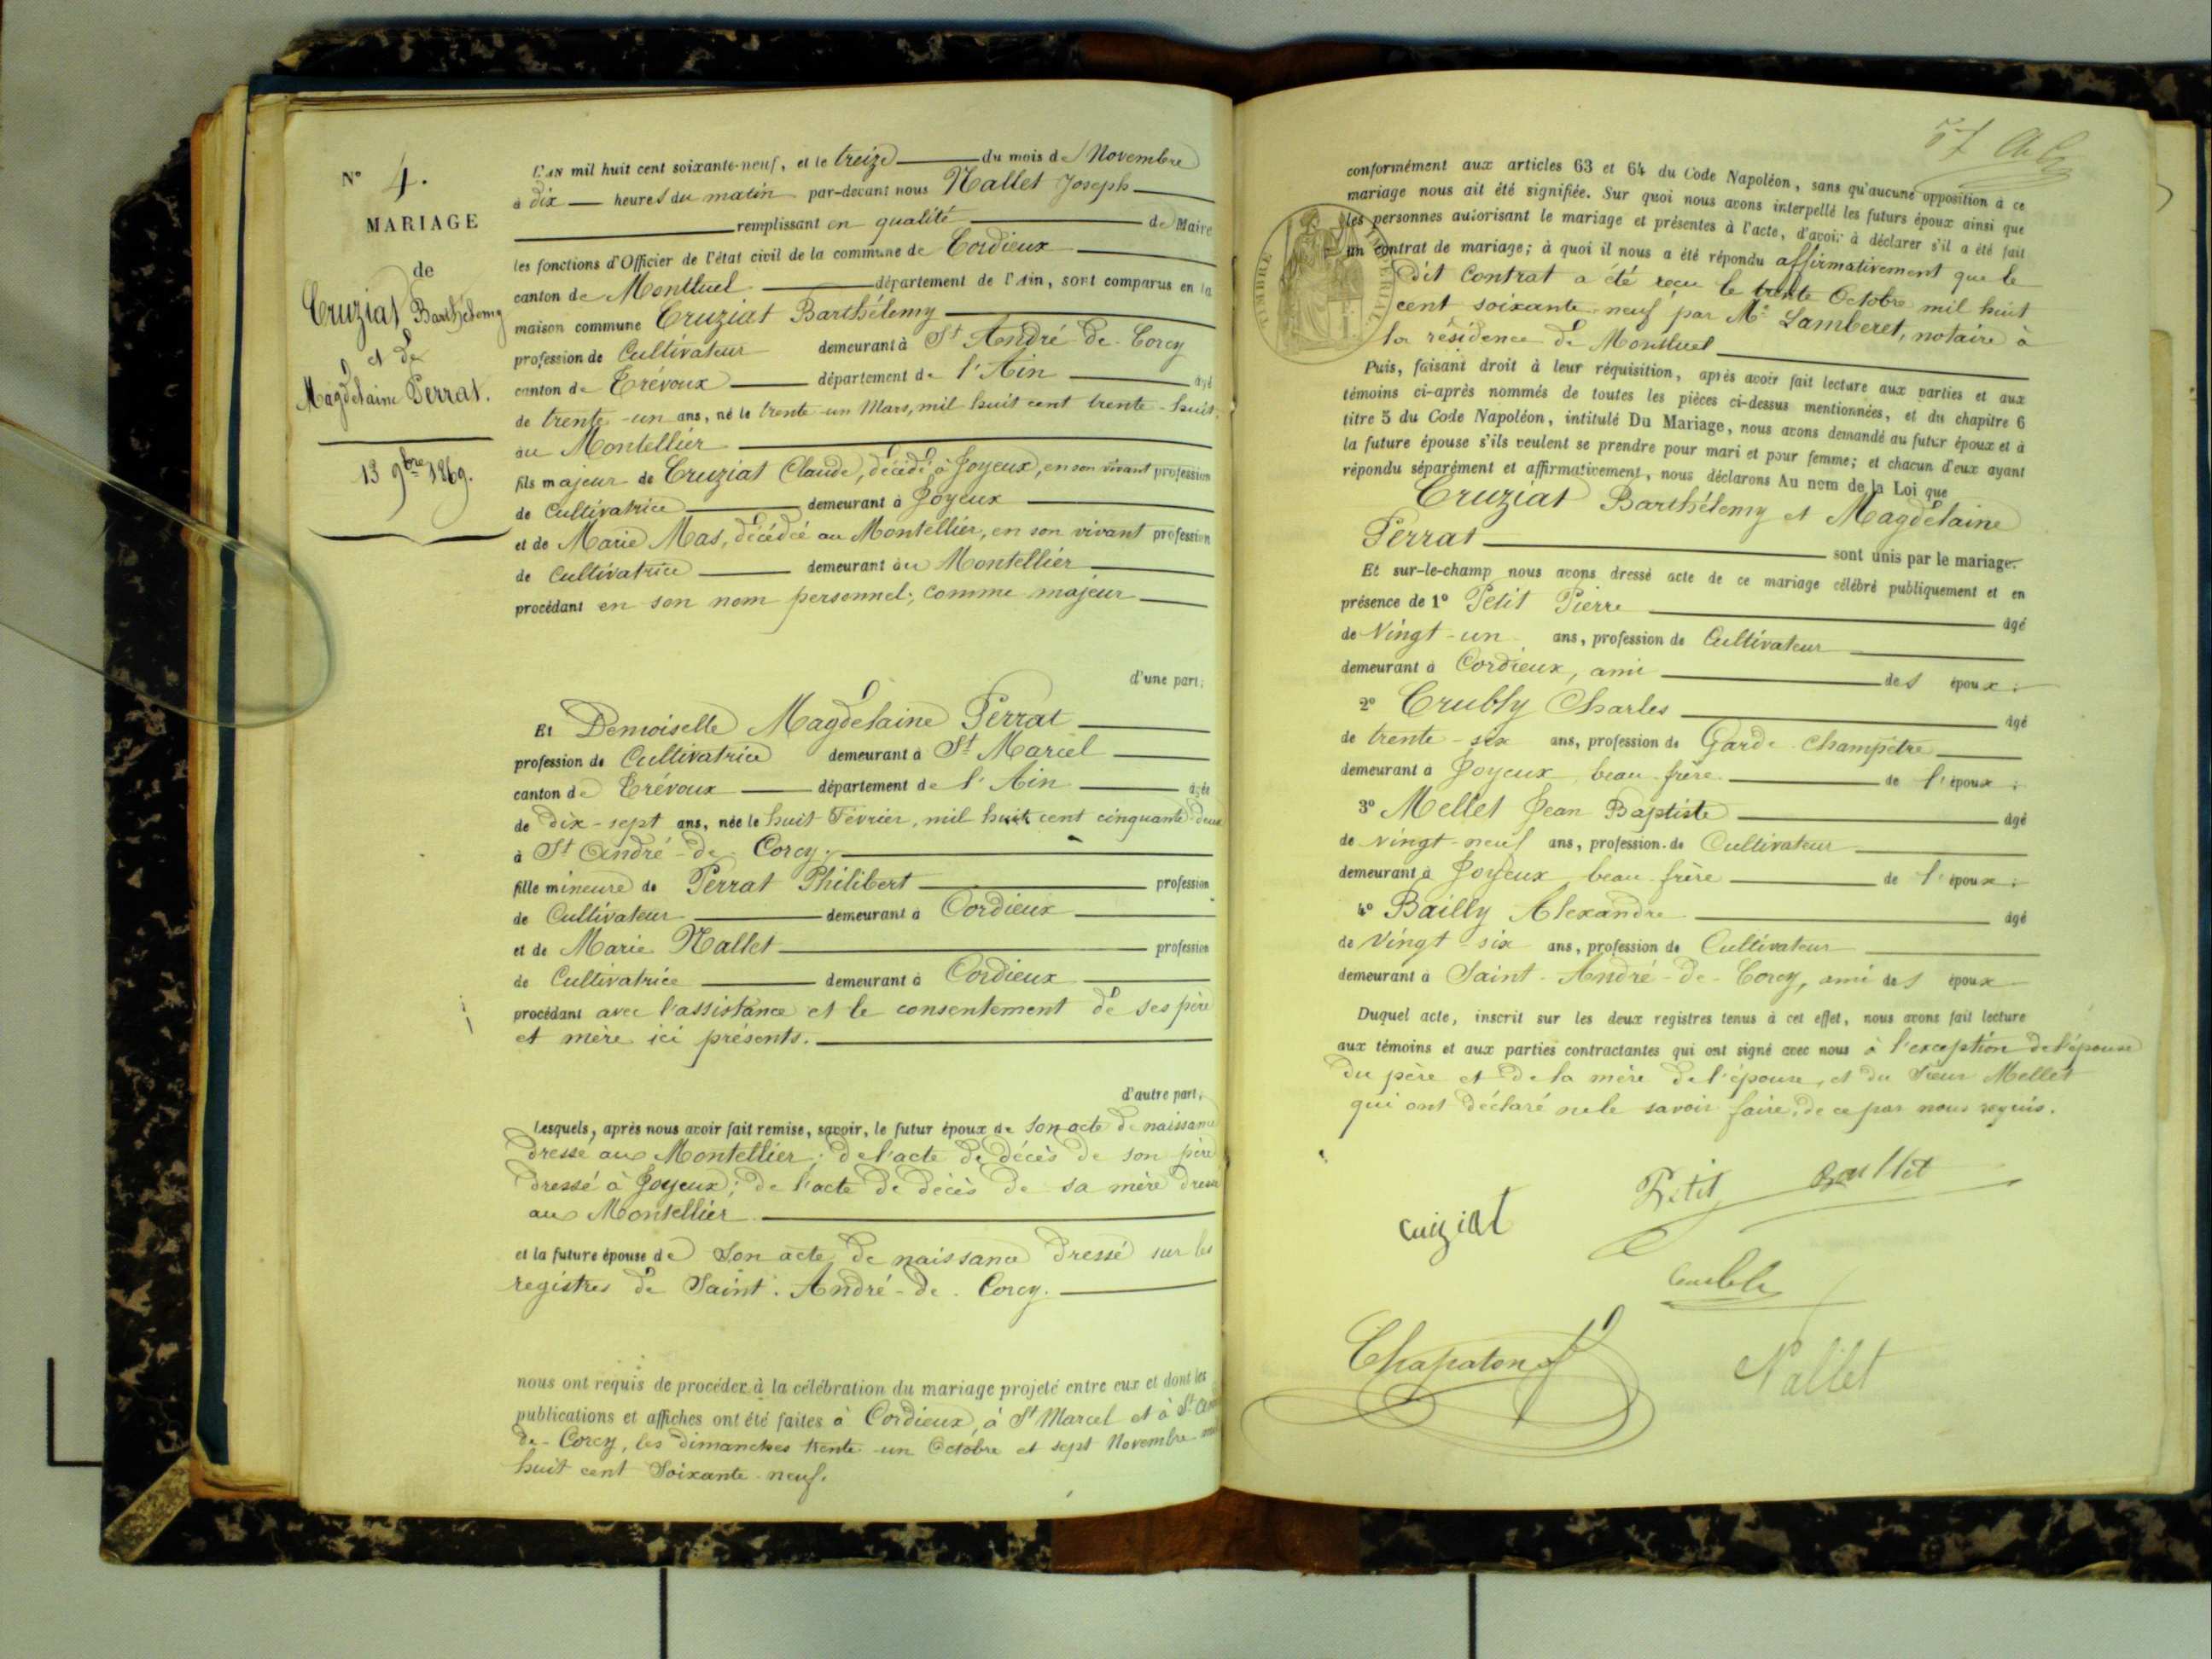 N° 4.
MARIAGE
de
Cruziat Barthélemy
et de
Magdelaine Perrat.
13 9bre 1869.
L'AN mil huit cent soixante-neuf, et le treize du mois de Novembre
à dix heures du matin par-devant nous Nallet Joseph
remplissant en qualité de Maire
les fonctions d'Officier de l'état civil de la commune de Cordieux
canton de Montluel département de l'Ain, sont comparus en la
maison commune Cruziat Barthélemy
profession de Cultivateur demeurant à St André-de-Corcy
canton de Trévoux département de l'Ain âgé
de trente-un ans, né le trente-un Mars, mil huit cent trente-huit
au Montellier
fils majeur de Cruziat Claude, décédé à Joyeux, en son vivant profession
de Cultivatrice demeurant à Joyeux
et de Marie Mas, décédée au Montellier, en son vivant profession
de Cultivatrice demeurant au Montellier
procédant en son nom personnel; comme majeur
d'une part;
Et Demoiselle Magdelaine Perrat
profession de Cultivatrice demeurant à St Marcel
canton de Trévoux département de l'Ain âgée
de dix-sept ans, née le huit Février, mil huit cent cinquante deux
à St André-de-Corcy.
fille mineure de Perrat Philibert profession
de Cultivateur demeurant à Cordieux
et de Marie Nallet profession
de Cultivatrice demeurant à Cordieux
procédant avec l'assistance et le consentement de ses père
et mère ici présents.
d'autre part;
Lesquels, après nous avoir fait remise, savoir, le futur époux de son acte de naissance
dressé au Montellier; de l'acte de décès de son père
dressé à Joyeux; de l'acte de décès de sa mère dressé
au Montellier
et la future épouse de son acte de naissance dressé sur les
registres de Saint-André-de-Corcy.
nous ont requis de procéder à la célébration du mariage projeté entre eux et dont les
publications et affiches ont été faites à Cordieux, à St Marcel et à St
de-Corcy, les dimanches trente-un Octobre et sept Novembre mil
huit cent Soixante-neuf.
57
conformément aux articles 63 et 64 du Code Napoléon, sans qu'aucune opposition à ce
mariage nous ait été signifiée. Sur quoi nous avons interpellé les futurs époux ainsi que
les personnes autorisant le mariage et présentes à l'acte, d'avoir à déclarer s'il a été fait
un contrat de mariage; à quoi il nous a été répondu affirmativement que le
dit Contrat a été reçu le trente Octobre mil huit
cent soixante-neuf par Me Lamberet, notaire à
la résidence de Montluel
TIMBRE IMPERIAL
Puis, faisant droit à leur réquisition, après avoir fait lecture aux parties et aux
témoins ci-après nommés de toutes les pièces ci-dessus mentionnées, et du chapitre 6
titre 5 du Code Napoléon, intitulé Du Mariage, nous avons demandé au futur époux et à
la future épouse s'ils veulent se prendre pour mari et pour femme; et chacun d'eux ayant
répondu séparément et affirmativement, nous déclarons Au nom de la Loi que
Cruziat Barthélemy et Magdelaine
Perrat sont unis par le mariage.
Et sur-le-champ nous avons dressé acte de ce mariage célébré publiquement et en
présence de 1° Petit Pierre âgé
de Vingt-un ans, profession de Cultivateur
demeurant à Cordieux, ami des époux;
2° Crubly Charles âgé
de trente-six ans, profession de Garde-Champêtre
demeurant à Joyeux beau-frère de l'époux;
3° Mellet Jean Baptiste âgé
de vingt-neuf ans, profession de Cultivateur
demeurant à Joyeux beau-frère de l'époux;
4° Bailly Alexandre âgé
de Vingt-six ans, profession de Cultivateur
demeurant à Saint-André-de-Corcy, ami des époux
Duquel acte, inscrit sur les deux registres tenus à cet effet, nous avons fait lecture
aux témoins et aux parties contractantes qui ont signé avec nous à l'exception de l'épouse
du père et de la mère de l'épouse, et du Sieur Mellet
qui ont déclaré ne le savoir faire, de ce par nous requis.
Petit
cuiziat
Chapaton
Nallet